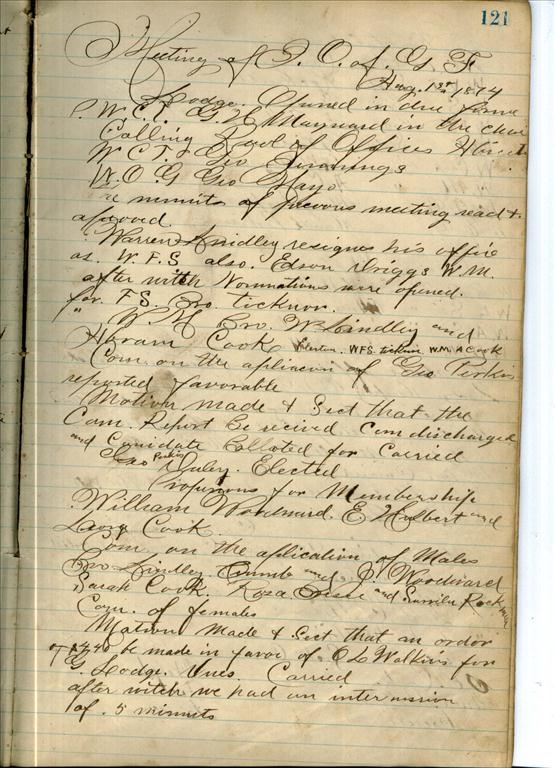 121
Meeting of I. O. of. G. T.
Aug. 1st 1874
Lodge. Opened in due forme
W. C. T. G H Maynard in the chair
Calling Roal of Offices
W. C. T. Geo Jennings
W. O. G Geo Mayo
minuits of prevous meeting read &
aproved
Warren Lindley resignes his office
as. W. F. S. also. Edson Briggs W. M.
after witch Nominations were opened.
for F S. Bro. ticknor.
" W. M Bro. W Lindley and
Abram Cook Election. W.F.S. ticknor W.M. A Cook
Com. on the apliacion of Geo Perkins
reported favorable
Motion made & sect that the
Com. Report be recived Com discharged
and Canidate balloted for Carried
Geo Perkins Duley. Elected
Propisions for Membership
William Woodward. E Hulbert and
Cook.
Com. on the aplication of Males
Bro Lindley and Woodward
Sarah Cook. Roza and Rockman
Com. of females
Motion Made & sect that an order
of be made in favor of O L Watkins for
G. Lodge. Dues. Carried
after witch we had an intermission
of. 5 minuits